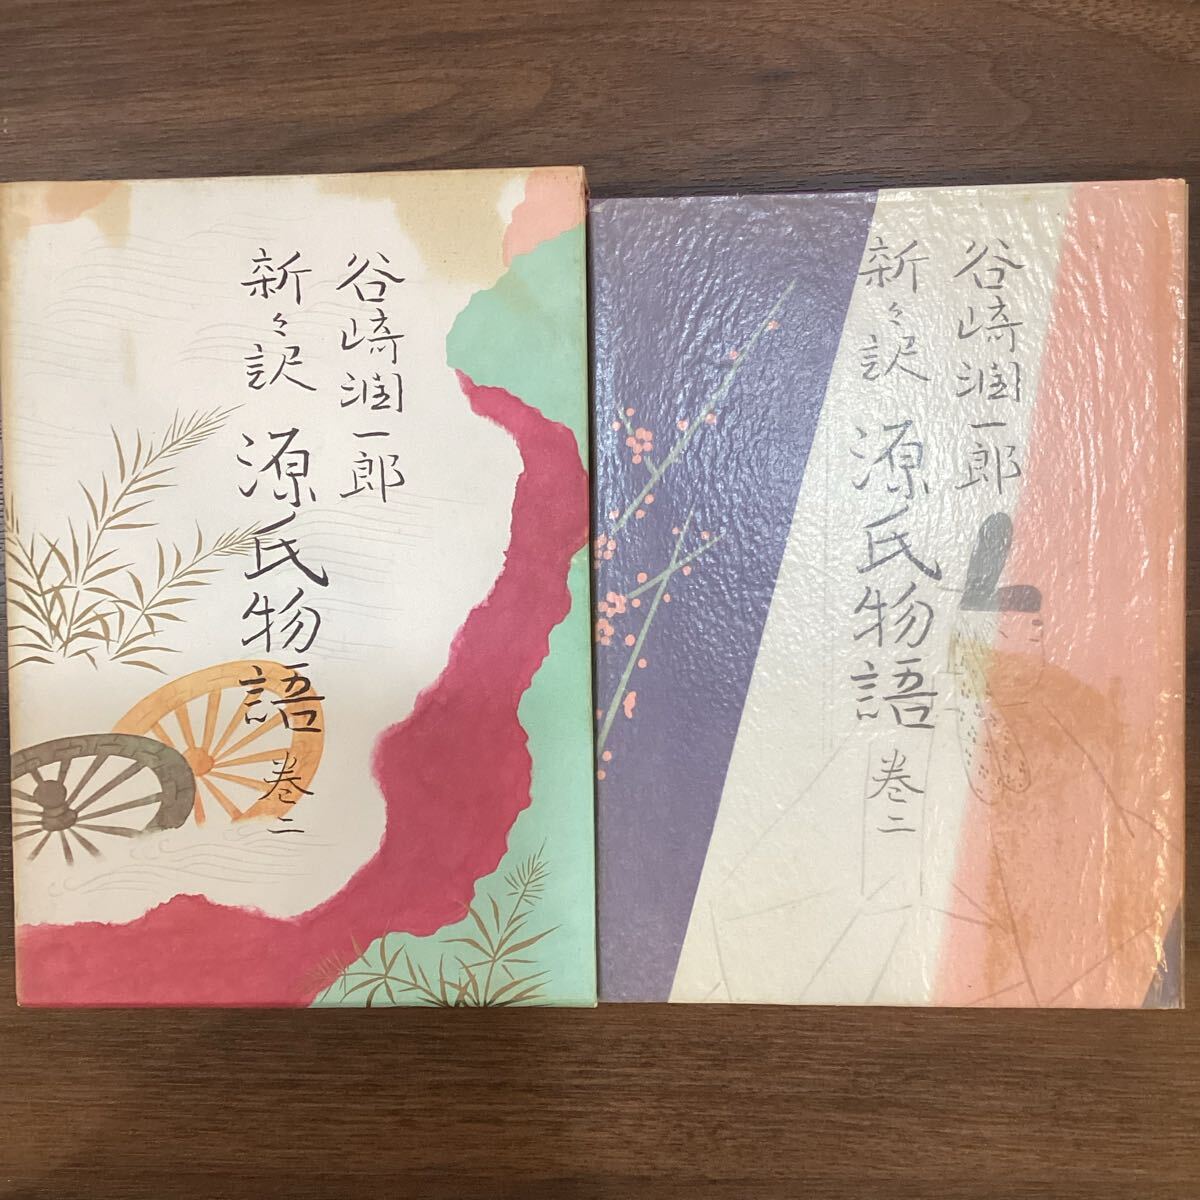 谷崎潤一郎
新々訳
源氏物語
巻二
谷崎潤一郎
新々訳
源氏物語
巻二